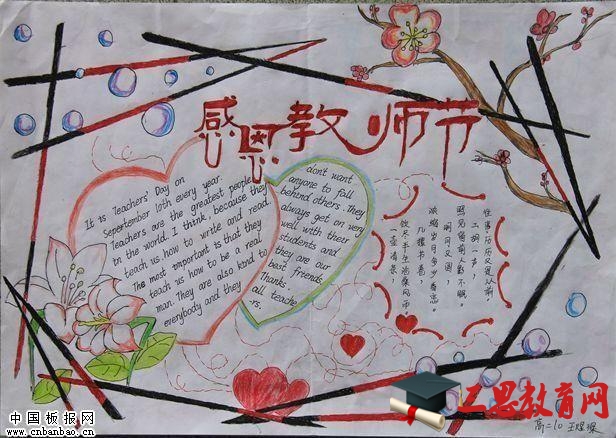 感恩教师节
It is Teachers' Day on
Seperternber 10th every year.
Teachers are the greatest people
in the world. I think, because they
teach us how to write and read.
The most important is that they
teach us how to be a real
man. They are also kind to
everybody and they
don't want
anyone to fall
behind others. They
always get on very
well with their
students and
they are our
best friends.
Thanks
all teache
-rs.
二胡一声，
明月又圆
几缕书香，
一壶清茶，
思教育网
高二10
中国板报网
www.cnbanbao.cn